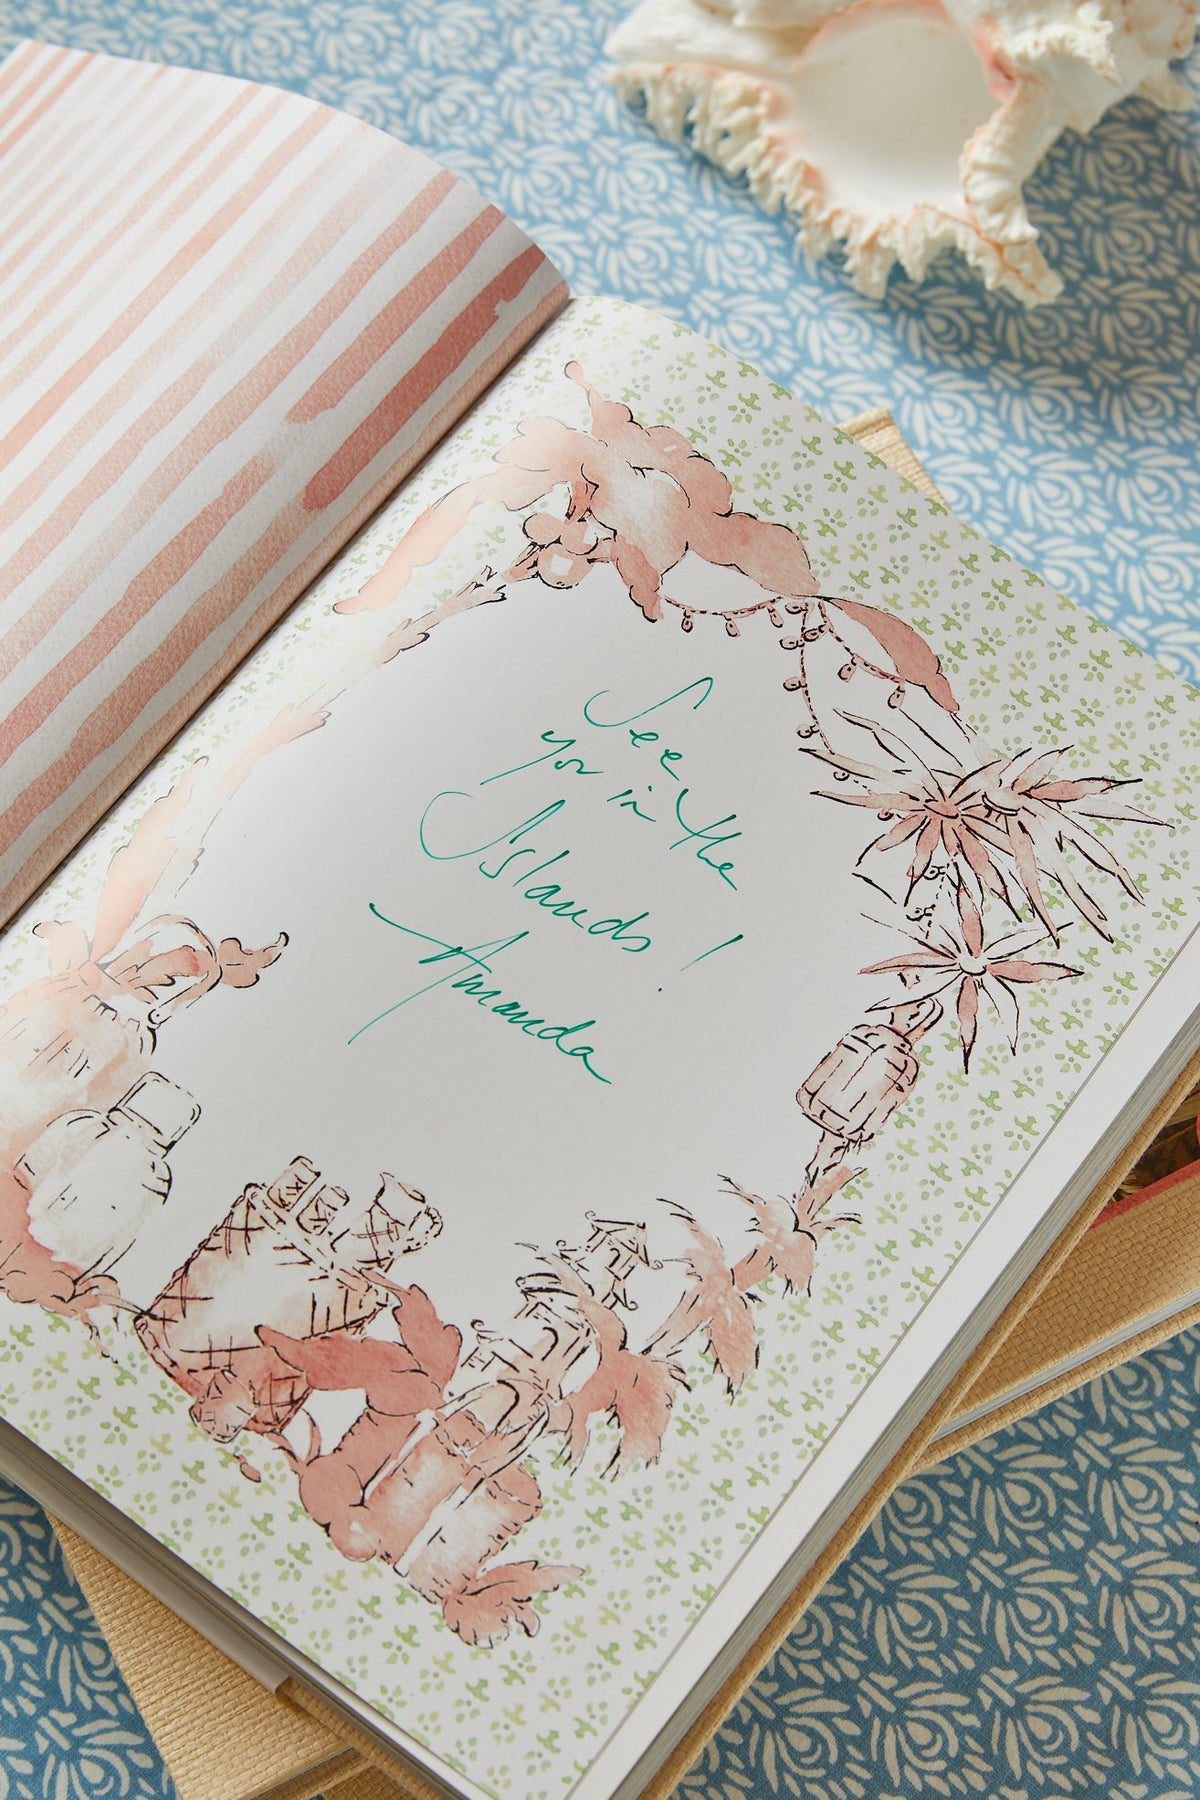 See
you in the
Islands!
Amanda